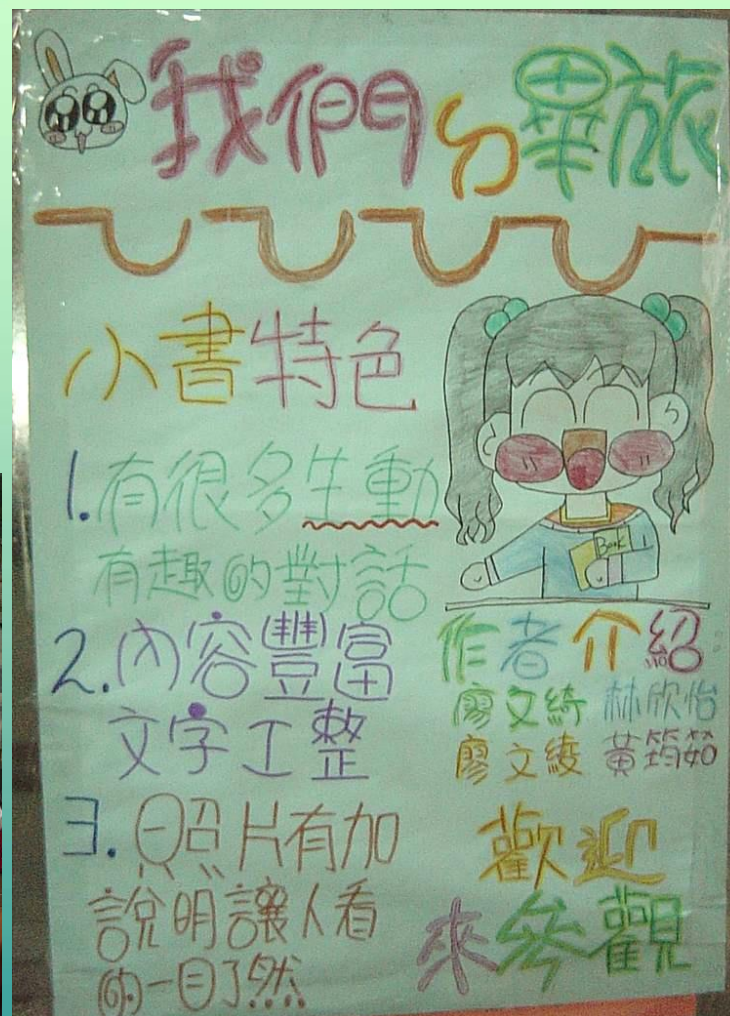 我們ㄉ畢旅
小書特色
1.有很多生動
有趣的對話
2.內容豐富
文字工整
3.照片有加
說明讓人看
的一目了然
Book
作者介紹
廖文綺 林欣怡
廖文綾 黃筠茹
歡迎
來參觀